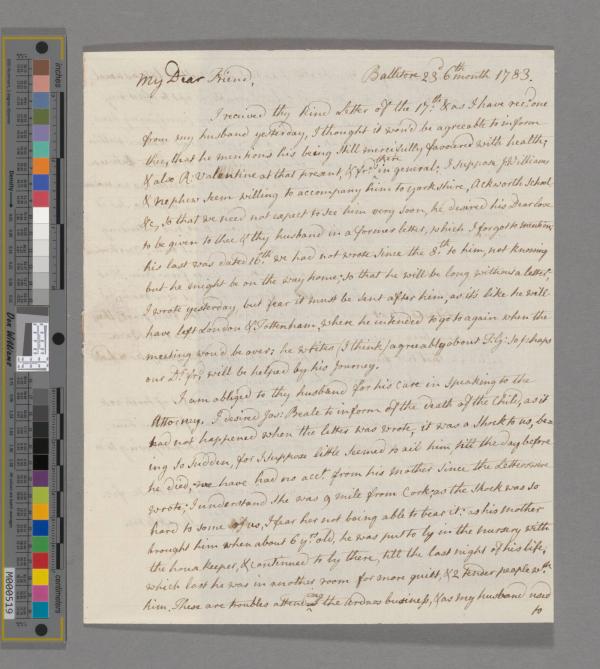 My Dear Friend,
Ballitore 23d 6th month 1783.
I received thy kind Letter of the 17th, & as I have recd. one
from my husband yesterday, I thought it wou'd be agreeable to inform
thee, that he mentions his being still mercifully favoured with health;
& also R: Valentine at that present, & frds. there in general; I suppose J: Williams
& Nephew seem willing to accompany him to Yorkshire, Ackworth School
&c, so that we need not expect to see him very soon, he desired his Dear love
to be given to thee & thy husband in a former letter, which I forgot to mention:
his last was dated 16th. we had not wrote since the 8th. to him, not knowing
but he might be on the way home; so that he will be long without a letter;
I wrote yesterday but fear it must be sent after him, as it's like he will
have left London & Tottenham, where he intended to go to again when the
meeting wou'd be over; he writes (I think) agreeably about so perhaps
our Dr. frd. will be helped by his Journey.
I am obliged to thy husband for his care in speaking to the
Attorney. I desired Jos: Beale to inform of the death of the Child, as it
had not happened when the letter was wrote, it was a shock to us, be=
ing so sudden, for I suppose little seemed to ail him, till the day before
he died, we have had no acct. from his mother since the Letters were
wrote; I understand she was 9 mile from Cork; as the shock was so
hard to some of us, I fear her not being able to bear it: as his mother
brought him when about 6 yrs. old, he was put to ly in the nursery with
the house keeper, & continued to ly there, till the last night of his life,
which last he was in another room for more quiet, & 2 tender people with
him, These are troubles attending the business, & as my husband used
to
inches
centimetres
Don Williams
Density
M000519